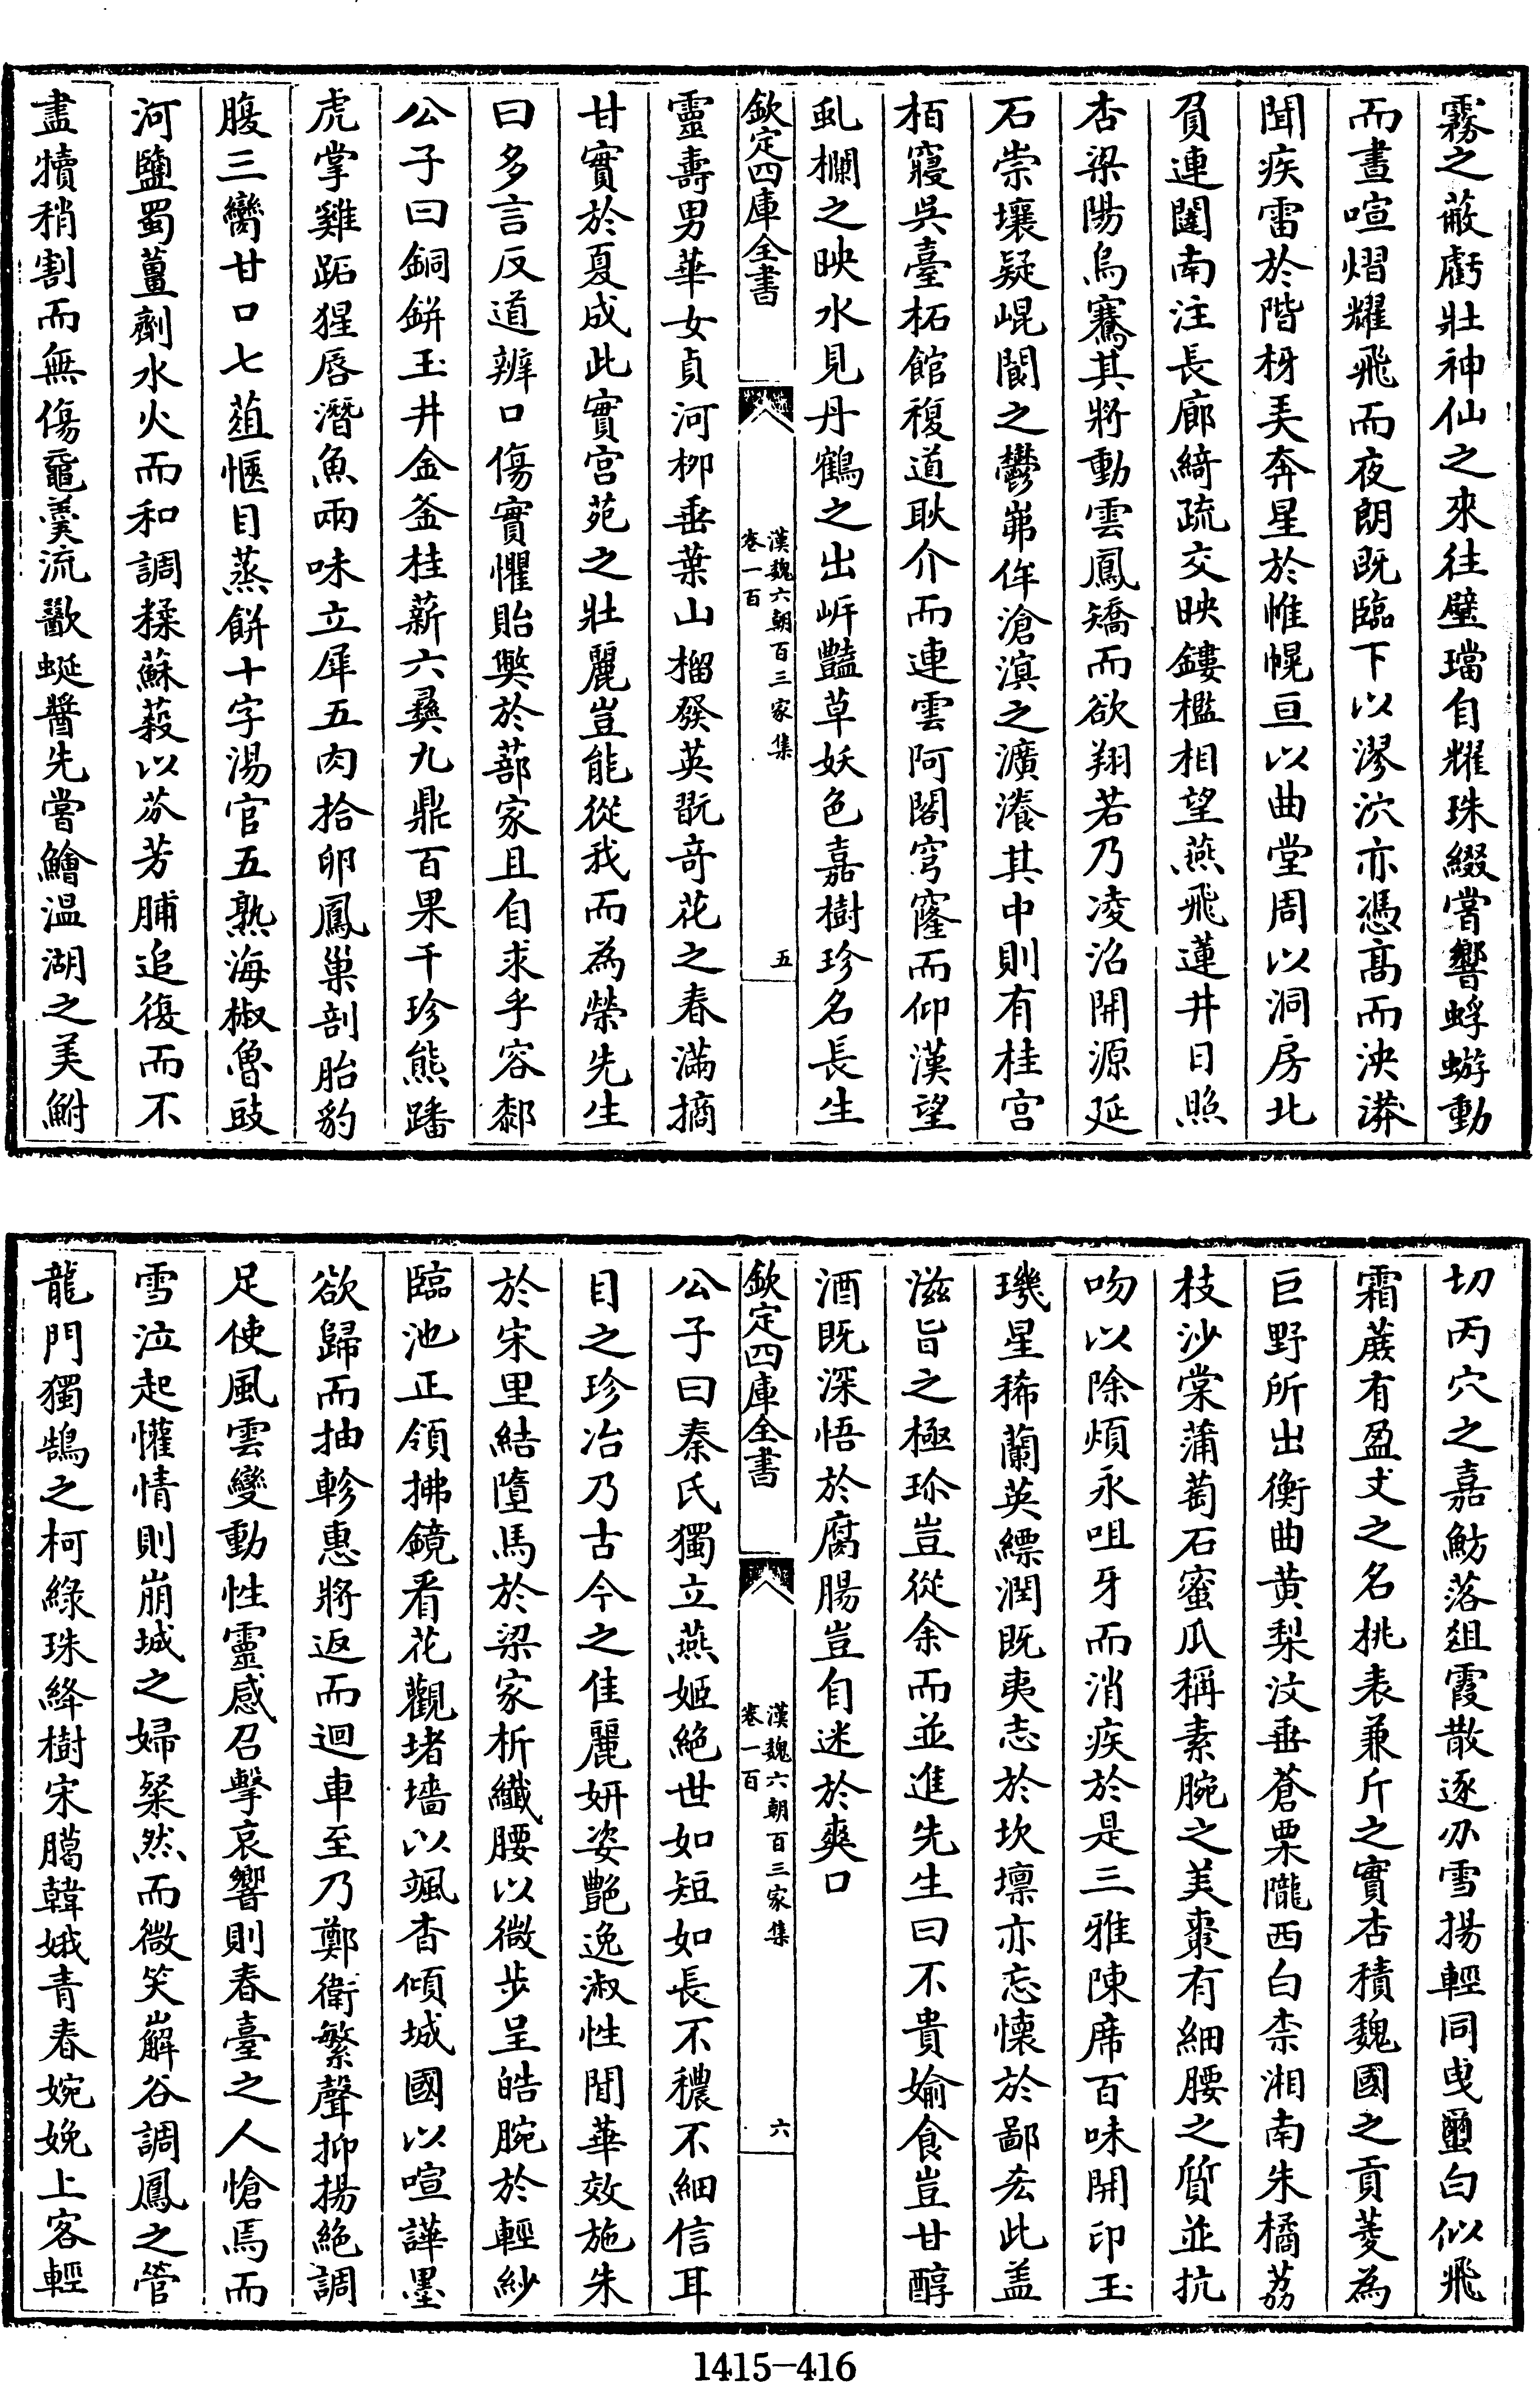 霧之蔽虧壯神仙之來往璧璫自耀珠綴嘗響蜉蝣動
而晝喧熠耀飛而夜朗既臨下以漻泬亦憑髙而泱漭
聞疾雷於階枒美奔星於惟幌亘以曲堂周以洞房北
負連闥南注長廊綺疏交映鏤檻相望燕飛蓮井日照
杏梁陽烏騫其將動雲鳳矯而欲翔若乃凌沼開源延
石崇壤疑崐閬之鬱岪侔滄溟之瀇瀁其中則有桂宫
栢寢吳臺柘館複道耿介而連雲阿閣穹窿而仰漢望
虬欄之映水見丹鶴之出㟁豔草妖色嘉樹珍名長生
欽定四庫全書
漢魏六朝百三家集
卷一百
五
靈壽男華女貞河栁垂葉山榴發英翫竒花之春滿摘
甘實於夏成此實宫苑之壯麗豈能從我而為榮先生
曰多言反道辨口傷實懼貽獘於蔀家且自求乎容厀
公子曰銅缾玉井金釜桂薪六彛九鼎百果千珍熊蹯
虎掌雞跖猩唇潛魚兩味立犀五肉拾卵鳳巢剖胎豹
腹三臠甘口七葅愜目蒸餅十字湯官五熟海椒魯豉
河鹽蜀薑劑水火而和調糅蘇蔱以芬芳脯追復而不
盡犢稍割而無傷黿羮流歠蜒醬先嘗鱠温湖之美鮒
切丙穴之嘉魴落俎霞散逐刅雪揚輕同曵璽白似飛
霜蔗有盈丈之名桃表兼斤之實杏積魏國之貢菱為
巨野所出衡曲黄梨汶垂蒼栗隴西白柰湘南朱橘荔
枝沙棠蒲萄石蜜瓜稱素腕之美棗有細腰之質並抗
吻以除煩永咀牙而消疾於是三雅陳席百味開印玉
璣星稀蘭英縹潤既夷志於坎壈亦忘懷於鄙吝此盖
滋㫖之極珎豈從余而並進先生曰不貴婾食豈甘醇
酒既深悟於腐腸豈自迷於爽口
欽定四庫全書
漢魏六朝百三家集
卷一百
六
公子曰秦氏獨立燕姬絶世如短如長不穠不細信耳
目之珍冶乃古今之佳麗妍姿艷逸淑性閒華效施朱
於宋里結墮馬於梁家析纖腰以微步呈皓腕於輕紗
臨池正領拂鏡看花觀堵墻以颯杳傾城國以喧譁墨
欲歸而抽軫惠將返而迴車至乃鄭衛繁聲抑揚絶調
足使風雲變動性靈感召擊哀響則春臺之人愴焉而
雪泣起懽情則崩城之婦粲然而微笑嶰谷調鳳之管
龍門獨鵠之柯綠珠絳樹宋臈韓娥青春婉娩上客輕
1415—416